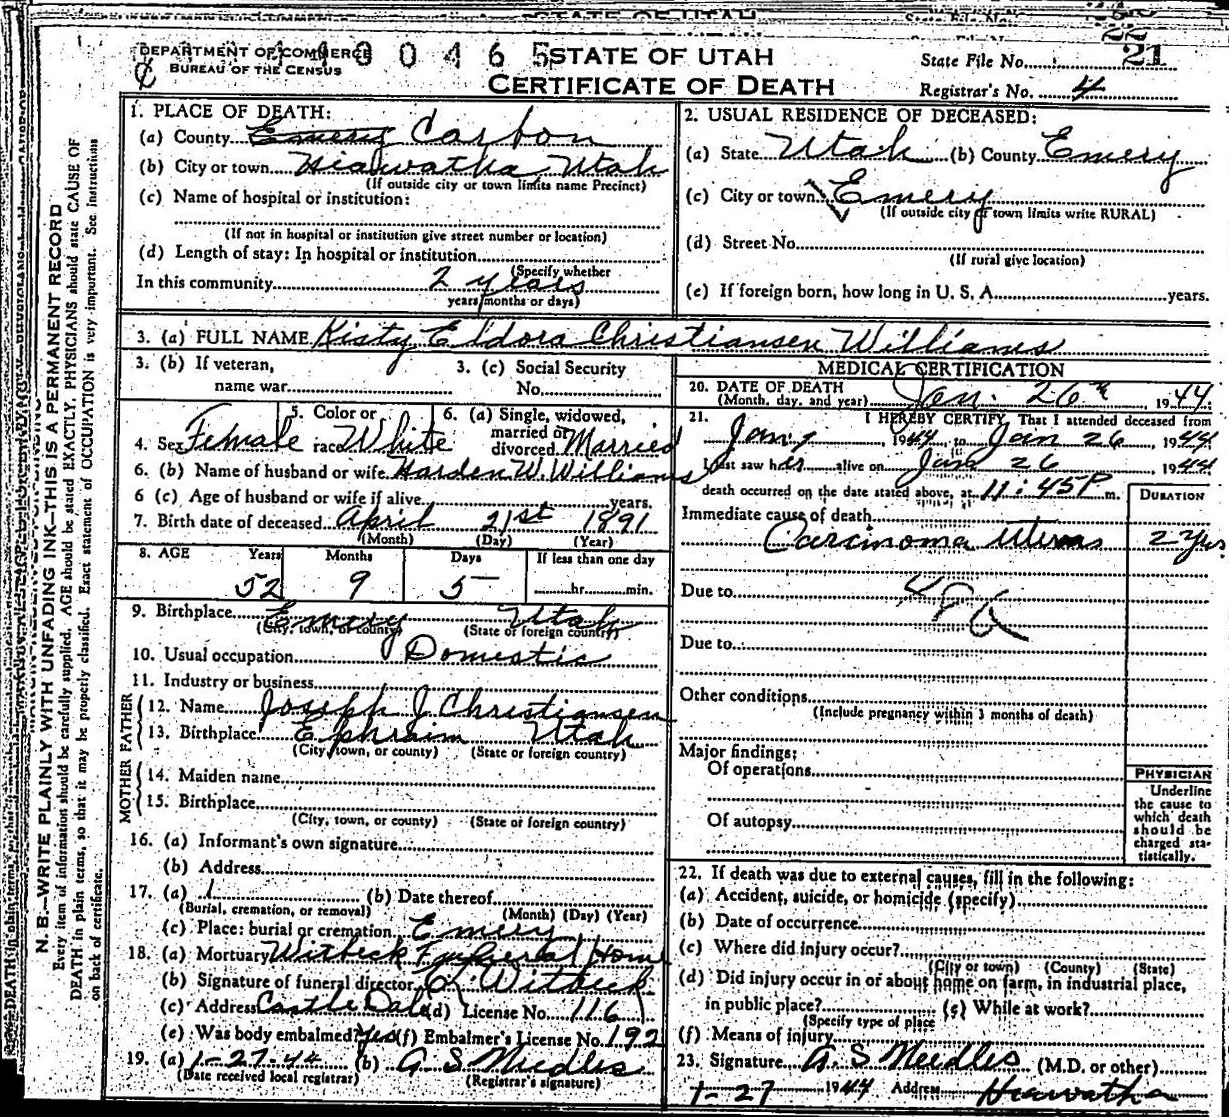 STATE OF UTAH
DEPARTMENT OF COMMERCE
BUREAU OF THE CENSUS
1 0 0 4 6 5
STATE OF UTAH
CERTIFICATE OF DEATH
State File No. 21
Registrar's No. 4
N. B.—WRITE PLAINLY WITH UNFADING INK—THIS IS A PERMANENT RECORD
Every item of information should be carefully supplied. AGE should be stated EXACTLY. PHYSICIANS should state CAUSE OF
DEATH in plain terms, so that it may be properly classified. Exact statement of OCCUPATION is very important. See Instructions
on back of certificate.
1. PLACE OF DEATH:
(a) County Emery Carbon
(b) City or town Hiawatha Utah
(If outside city or town limits name Precinct)
(c) Name of hospital or institution:
(If not in hospital or institution give street number or location)
(d) Length of stay: In hospital or institution
(Specify whether
In this community 2 years
years, months or days)
2. USUAL RESIDENCE OF DECEASED:
(a) State Utah (b) County Emery
(c) City or town Emery
(If outside city or town limits write RURAL)
(d) Street No.
(If rural give location)
(e) If foreign born, how long in U. S. A. years.
3. (a) FULL NAME Kisty Eldora Christiansen Williams
3. (b) If veteran,
name war
3. (c) Social Security
No.
4. Sex Female
5. Color or
race White
6. (a) Single, widowed,
married or
divorced Married
6. (b) Name of husband or wife Harden W. Williams
6 (c) Age of husband or wife if alive years.
7. Birth date of deceased April 21st 1891
(Month) (Day) (Year)
8. AGE Years Months Days If less than one day
52 9 5 hr. min.
9. Birthplace Emery Utah
(City, town, or county) (State or foreign country)
10. Usual occupation Domestic
11. Industry or business
FATHER
12. Name Joseph J Christiansen
13. Birthplace Ephraim Utah
(City, town, or county) (State or foreign country)
MOTHER
14. Maiden name
15. Birthplace
(City, town, or county) (State or foreign country)
16. (a) Informant's own signature
(b) Address
17. (a) 1 (b) Date thereof
(Burial, cremation, or removal) (Month) (Day) (Year)
(c) Place: burial or cremation Emery
18. (a) Mortuary Witbeck Funeral Home
(b) Signature of funeral director Witbeck
(c) Address Castle Dale (d) License No. 116
(e) Was body embalmed? Yes (f) Embalmer's License No. 192
19. (a) 1-27-44 (b) A S Meedles
(Date received local registrar) (Registrar's signature)
MEDICAL CERTIFICATION
20. DATE OF DEATH
(Month, day, and year) Jan. 26th, 1944
21. I HEREBY CERTIFY, That I attended deceased from
Jan 1, 1944, to Jan 26, 1944
I last saw her alive on Jan 26 1944
death occurred on the date stated above, at 11:45 P m.
DURATION
Immediate cause of death
Carcinoma Uterus 2 yrs.
Due to
Due to
Other conditions
(Include pregnancy within 3 months of death)
Major findings:
Of operations
Of autopsy
PHYSICIAN
Underline
the cause to
which death
should be
charged sta-
tistically.
22. If death was due to external causes, fill in the following:
(a) Accident, suicide, or homicide (specify)
(b) Date of occurrence
(c) Where did injury occur?
(City or town) (County) (State)
(d) Did injury occur in or about home on farm, in industrial place,
in public place? (e) While at work?
(Specify type of place
(f) Means of injury
23. Signature A. S Meedles (M.D. or other)
1-27 1944 Address Hiawatha